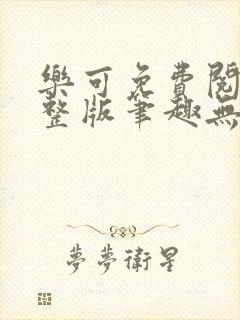 樂可免費閱
整版筆趣無
夢夢衛星